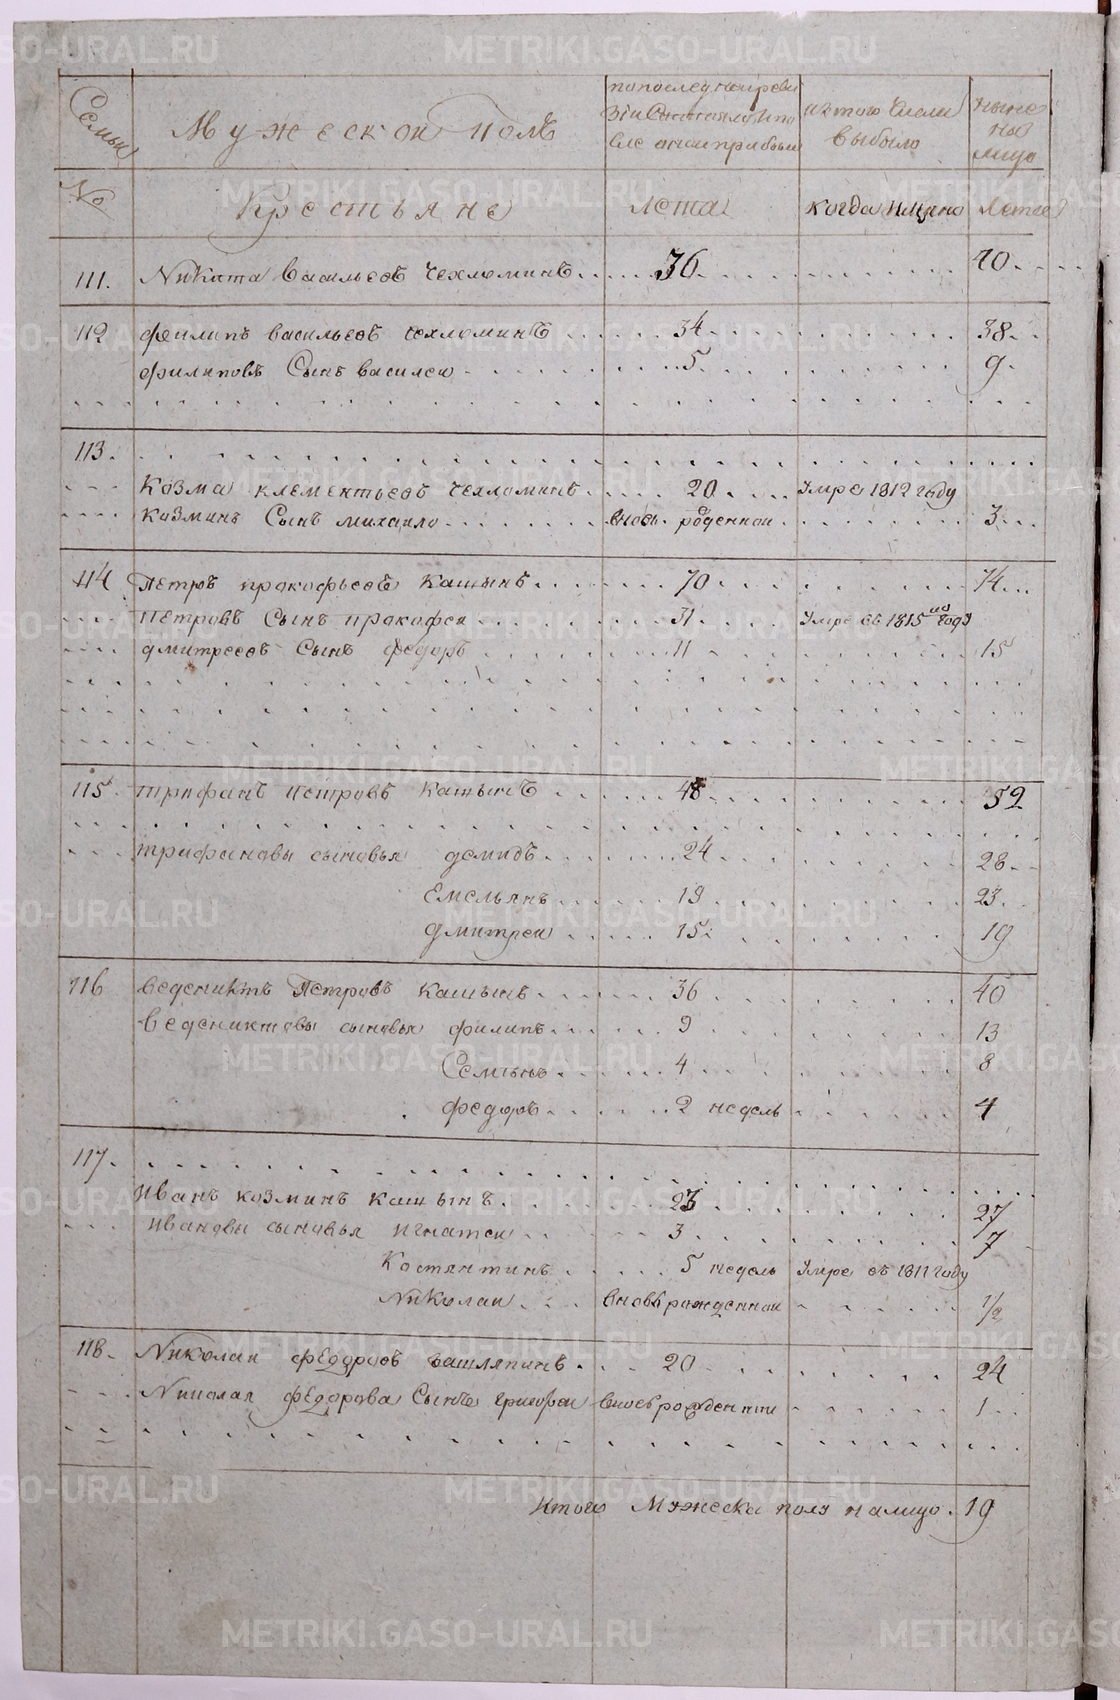 METRIKI.GASO-URAL.RU
Семьи
Мужеской полъ
по последней реви
зіи состояло и по
сле оной прибыло
из того числа
выбыло
ныне
на
лицо
№
Крестьяне
Лета
когда имяно
Лета
111. Никита васильевъ чехломинъ 36 40
112 филипъ васильевъ чехломинъ 34 38
филиповъ Сынъ василеи 5 9
113.
Козма клементьевъ чехломинъ 20 Умре 1812 году
козминъ Сынъ михаило вновь роденной 3
114 Петръ прокофьевъ Кашынъ 70 74
Петровъ Сынъ прокофеи 31 Умре въ 1815 мъ году
дмитреевъ Сынъ федоръ 11 15
115 трифанъ петровъ Кашынъ 48 52
трифановы сыновья демидъ 24 28
Емельянъ 19 23
дмитреи 15 19
116 веденихтъ Петровъ Кашынъ 36 40
веденихтовы сыновья филипъ 9 13
Семіонъ 4 8
федоръ 2 недель 4
117.
Иванъ козминъ Кашынъ 23 27
Ивановы сыновья игнатеи 3 7
Костянтинъ 5 недель Умре въ 1811 году
Николаи вновь рожденнои 1/2
118. Николаи федоровъ башляпинъ 20 24
Николая федорова Сынъ григореи вновь рожденнои 1
Итого Мужеска полу на лицо 19